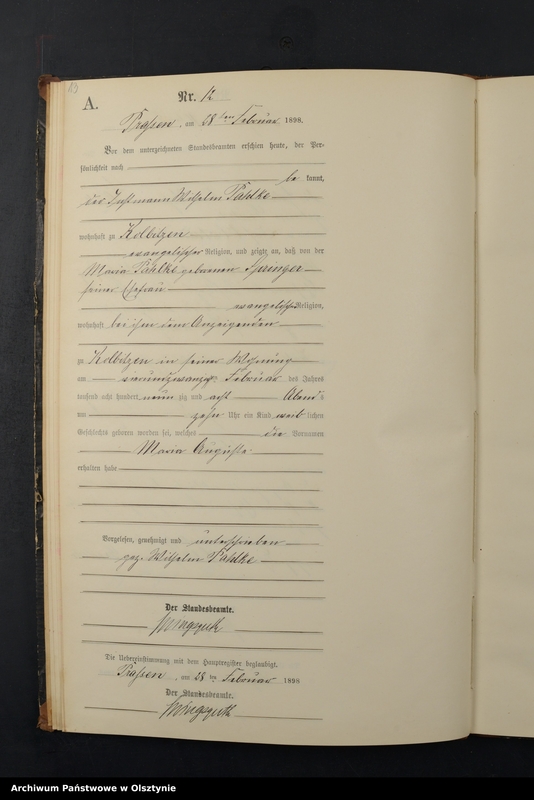 A.
Nr. 12
Praßen, am 28 ten Februar 1898.
Vor dem unterzeichneten Standesbeamten erschien heute, der Per-
sönlichkeit nach
be kannt,
der Wilhelm Pahlke
wohnhaft zu Kolbitzen
evangelischer Religion, und zeigte an, daß von der
Maria Pahlke geborenen Springer
seiner Ehefrau
evangelischer Religion,
wohnhaft bei ihm dem Anzeigenden
zu Kolbitzen in seiner Wohnung
am vierundzwanzig Februar des Jahres
tausend acht hundert neun zig und acht Abend s
um zehn Uhr ein Kind weib lichen
Geschlechts geboren worden sei, welches die Vornamen
Maria Auguste
erhalten habe
Vorgelesen, genehmigt und unterschrieben
gez. Wilhelm Pahlke
Der Standesbeamte.
Die Uebereinstimmung mit dem Hauptregister beglaubigt.
Praßen, am 28 ten Februar 1898
Der Standesbeamte.
Archiwum Państwowe w Olsztynie